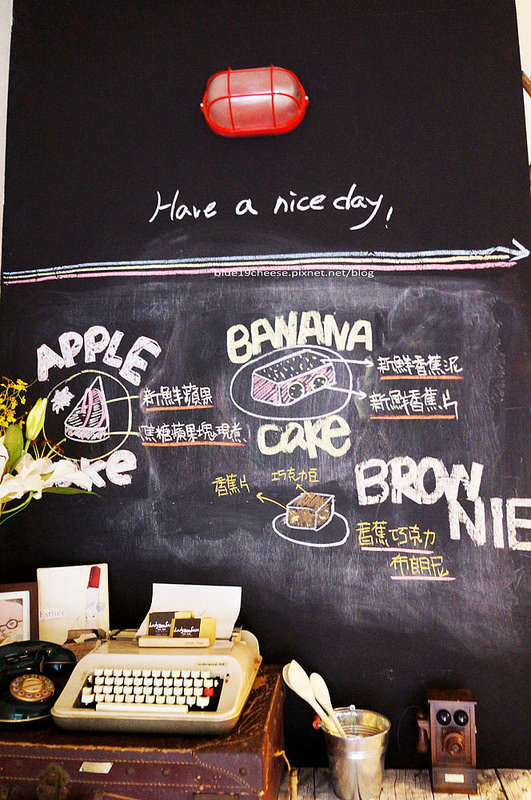 Have a nice day!
blue19cheese.pixnet.net/blog
APPLE
cake
新鮮蘋果
焦糖蘋果塊現煮
BANANA
cake
新鮮香蕉泥
新鮮香蕉片
BROWNIE
香蕉片
巧克力豆
香蕉巧克力
布朗尼